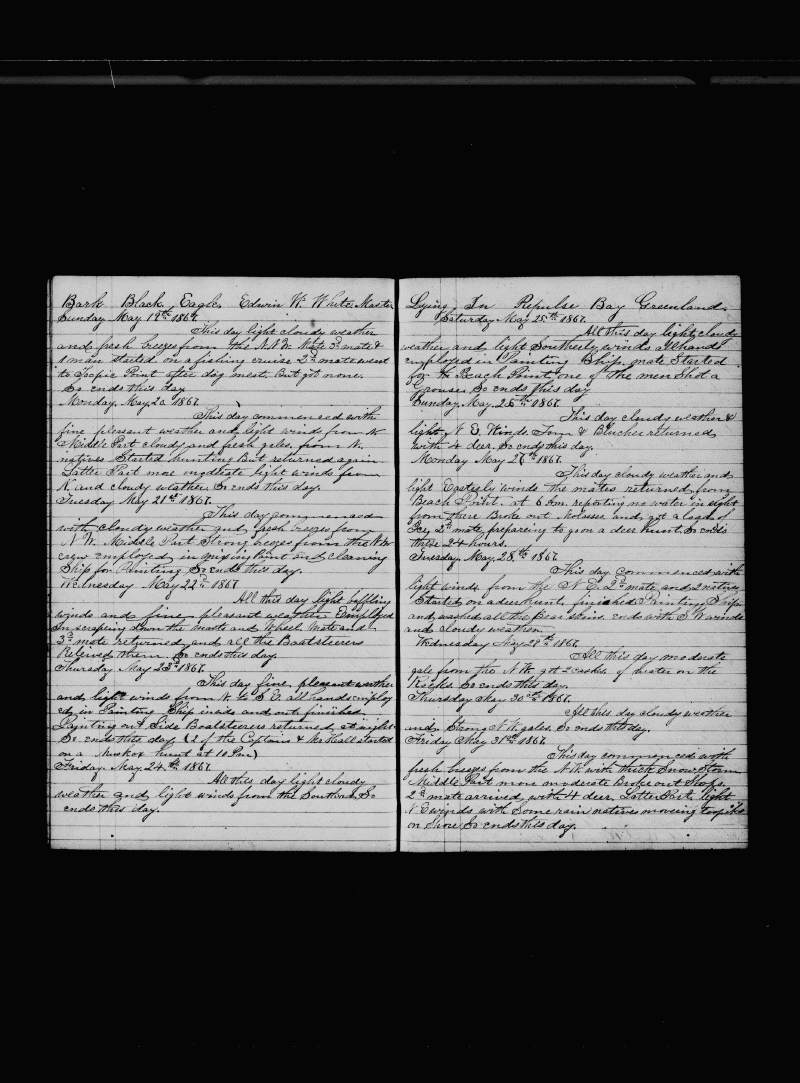 Bark Black Eagle, Edwin W. White Master
Sunday May 19th 1867.
This day light cloudy weather
and fresh breezes from the N.N.W. Mate 3d mate &
1 man started on a fishing cruise 2d mate went
to Tropic Point after dog meat. But got none.
So ends this day
Monday, May, 20 1867.
This day commenced with
fine pleasent weather and light winds from N
Middle Part cloudy and fresh gales, from N.
natives Started hunting But returned again
Latter Part more moderate light winds from
N and cloudy weather So ends this day.
Tuesday May 21st 1867.
This day commenced
with cloudy weather and fresh breezes from
N.W. Middle Part Strong breezes from the NW
crew employed in mixing Paint and cleaning
Ship for Painting So ends this day.
Wednesday May 22d 1867
All this day light baffling
winds and fine pleasent weather Employed
in scraping down the masts and Wheel Mate and
3d mate returned and all the Boatsteerers
Relieved them. So ends this day.
Thursday May 23d 1867.
This day fine pleasant weather
and light winds from N. to S E. all hands employ
ed, in Painting Ship inside and out, finished
Painting out Side Boatsteerers returned at night
So ends this day (2 of the Captains & Mr Hall started
on a Muskox hunt at 10 Pm)
Friday May 24.th 1867.
All this day light cloudy
weather and light winds from the Southard, So
ends this day.
Lying In Repulse Bay Greenland.
Saturday May 25th 1867.
All this day light clouds
weather and light Southerly winds All hands
employed in Painting Ship. mate Started
for the Beach Point one of the men Shot a
Grouse, So ends this day
Sunday, May, 26th 1867.
This day clouds weather &
light N.E. Winds. Tom & Blucher returned
with 4 deer. So ends this day.
Monday May 27th 1867.
This day cloudy weather and
light Easterly winds the mates returned from
Beach Point at 6 Am. reporting no water in sight
from there Broke out Molasses and got a load of
Ice, 2d mate prepareing to go on a deer hunt. So ends
these 24 hours.
Tuesday, May, 28th 1867
This day commenced with
light winds from the N E. 2d mate and 2 natives
Started on a deer hunt, finished Painting Ship
and washed all the Bear skins ends with S W winds
and cloudy weather.
Wednesday May 29th 1867.
All this day moderate
gale from the N.W. got 2 casks of water on the
Rocks. So ends this day.
Thursday May 30th 1867.
All this day cloudy weather
and Strong N.W. gales, So ends this day.
Friday May 31st 1867.
This day commenced with
fresh breezes from the N.W. with thick Snow Storm
Middle Part more moderate Broke out Shooks.
2d mate arrived with 4 deer, Latter Part light
N E winds with Some rain natives moveing toopiks
on Shore So ends this day.